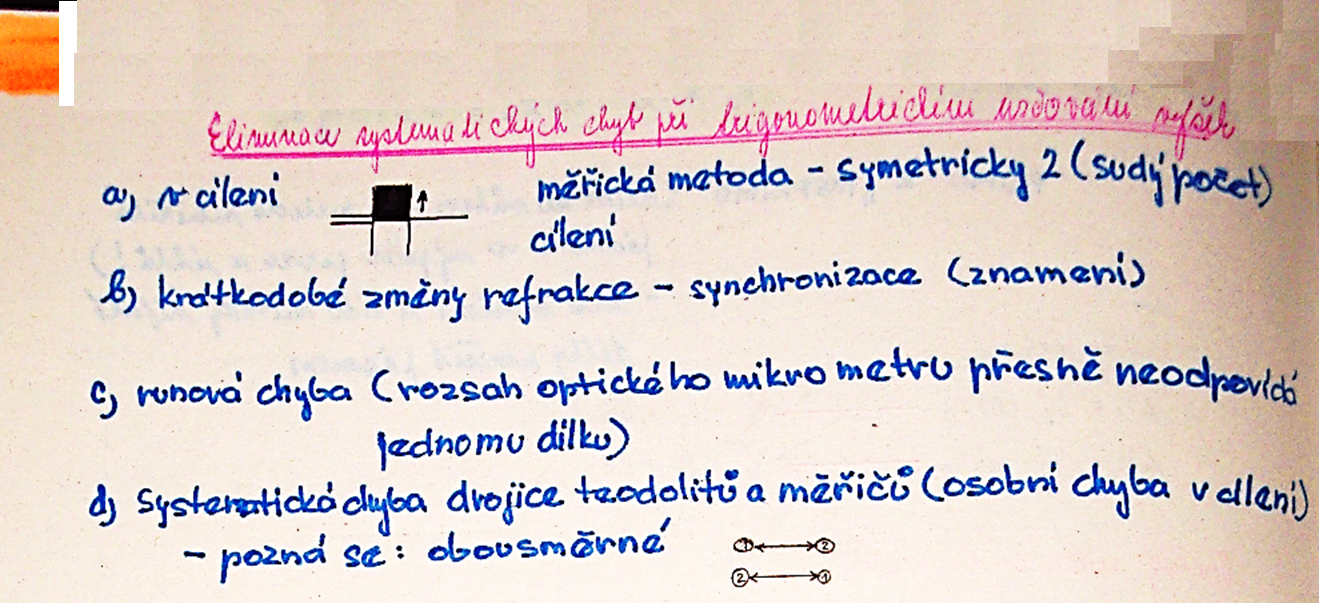 Eliminace systematických chyb při trigonometrickém určování výšek
a) v cílení měřická metoda - symetricky 2 (sudý počet)
cílení
b) krátkodobé změny refrakce - synchronizace (znamení)
c) runová chyba (rozsah optického mikrometru přesně neodpovídá
jednomu dílku)
d) Systematická chyba dvojice teodolitů a měřičů (osobní chyba v cílení)
- pozná se: obousměrné
① ②
② ①